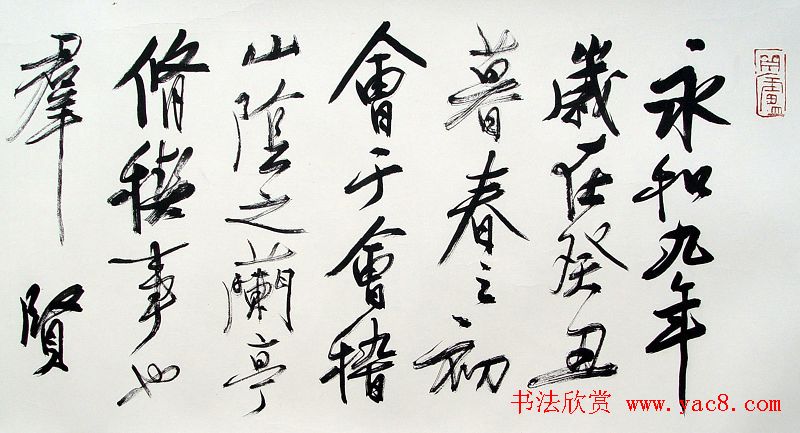 永和九年
歲在癸丑
暮春之初
會于會稽
山陰之蘭亭
脩稧事也
羣賢
书法欣赏 www.yac8.com